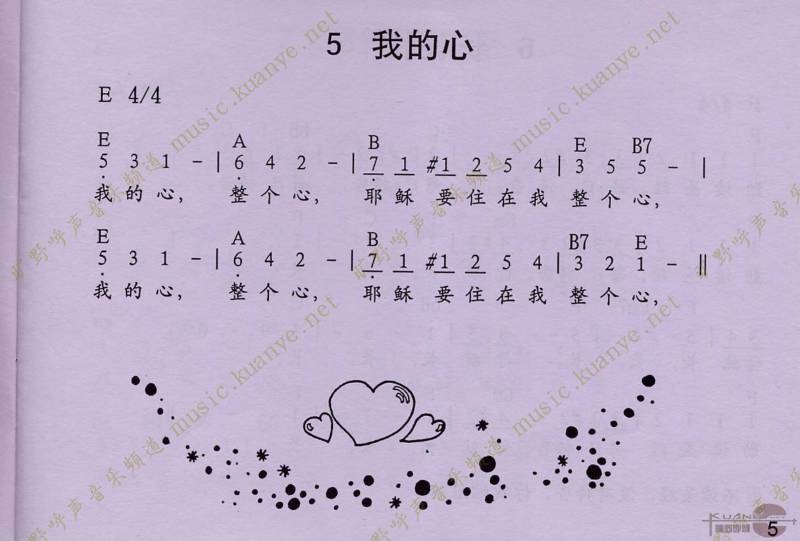 5 我的心
E 4/4
E A B E B7
5 3 1 - | 6 4 2 - | 7 1 #1 2 5 4 | 3 5 5 - |
我 的 心, 整 个 心, 耶 稣 要 住 在 我 整 个 心,
E A B B7 E
5 3 1 - | 6 4 2 - | 7 1 #1 2 5 4 | 3 2 1 - ||
我 的 心, 整 个 心, 耶 稣 要 住 在 我 整 个 心,
旷野呼声音乐频道 music.kuanye.net
旷野呼声音乐频道 music.kuanye.net
旷野呼声音乐频道 music.kuanye.net
5